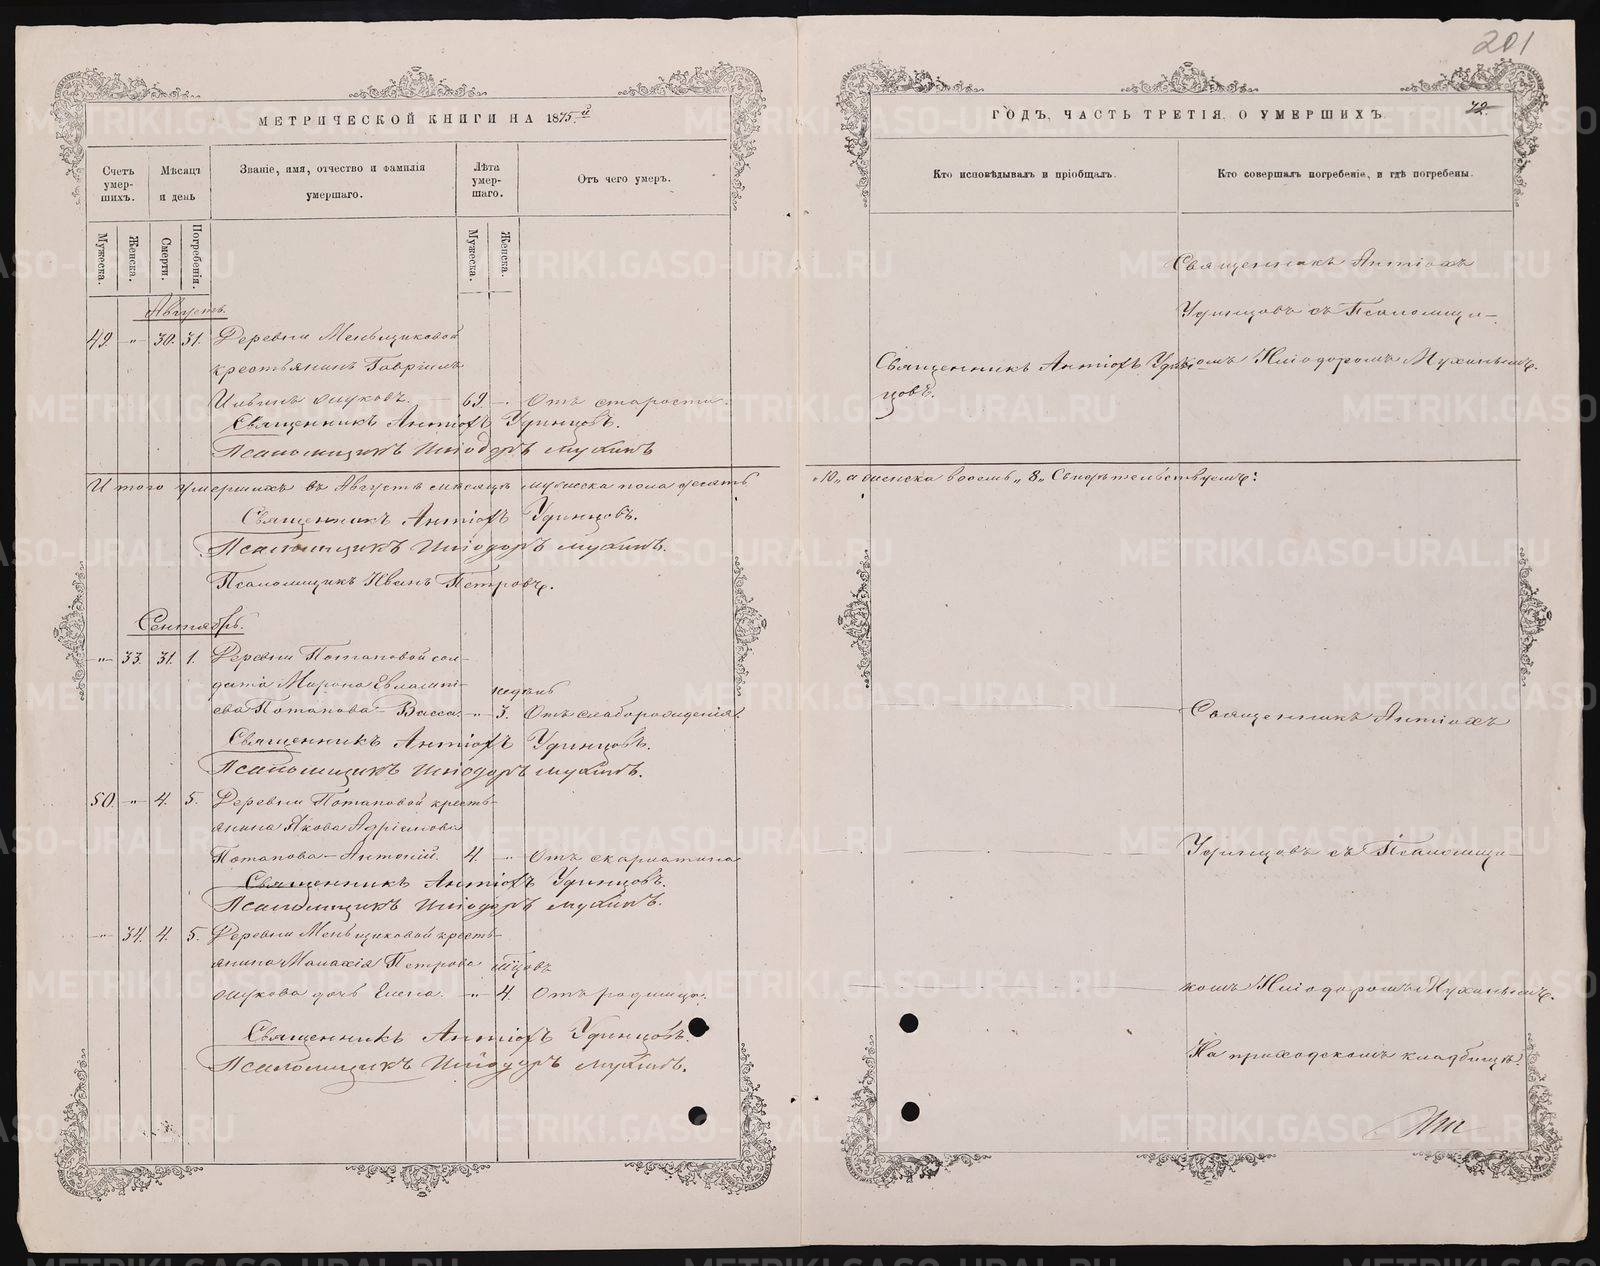 201
МЕТРИЧЕСКОЙ КНИГИ НА 1875й
Счетъ умер- шихъ.
Мѣсяцъ и день
Званіе, имя, отчество и фамилія умершаго.
Лѣта умер- шаго.
Отъ чего умеръ.
Мужеска.
Женска.
Смерти.
Погребенія.
Мужеска.
Женска.
Августъ.
49. „ 30. 31. Деревни Меньщиковой
крестьянинъ Гавріилъ
69. „ Отъ старости.
Священникъ Антіохъ Удинцовъ.
Псаломщикъ Иліодоръ Мухинъ
Итого умершихъ въ Августѣ мѣсяцѣ мужеска пола десять
Священникъ Антіохъ Удинцовъ.
Псаломщикъ Иліодоръ Мухинъ.
Псаломщикъ Иванъ Петровъ.
Сентябрь.
„ 33. 31. 1. Деревни Потаповой сол-
дата Мирона Евлампі-
недѣль
ева Потапова – Васса. „ 3. Отъ слаборожденія.
Священникъ Антіохъ Удинцовъ.
Псаломщикъ Иліодоръ Мухинъ.
50. „ 4. 5. Деревни Потаповой кресть-
янина Якова Адріанова
Потапова – Антоній. 4. „ Отъ скарлатина
Священникъ Антіохъ Удинцовъ.
Псаломщикъ Иліодоръ Мухинъ.
„ 34. 4. 5. Деревни Меньщиковой кресть-
янина Малахія Петрова
дочь Елена. „ 4. Отъ родимца.
Священникъ Антіохъ Удинцовъ.
Псаломщикъ Иліодоръ Мухинъ.
ГОДЪ, ЧАСТЬ ТРЕТІЯ, О УМЕРШИХЪ
72.
Кто исповѣдывалъ и пріобщалъ.
Кто совершалъ погребеніе, и гдѣ погребены.
Священникъ Антіохъ
Удинцовъ съ Псаломщи-
Священникъ Антіохъ Удин-
комъ Иліодоромъ Мухинымъ.
цовъ.
„10„ а женска восемь „8„ Свидѣтельствуемъ:
Священникъ Антіохъ
Удинцовъ съ Псаломщи-
комъ Иліодоромъ Мухинымъ.
На приходскомъ кладбищѣ.
METRIKI.GASO-URAL.RU